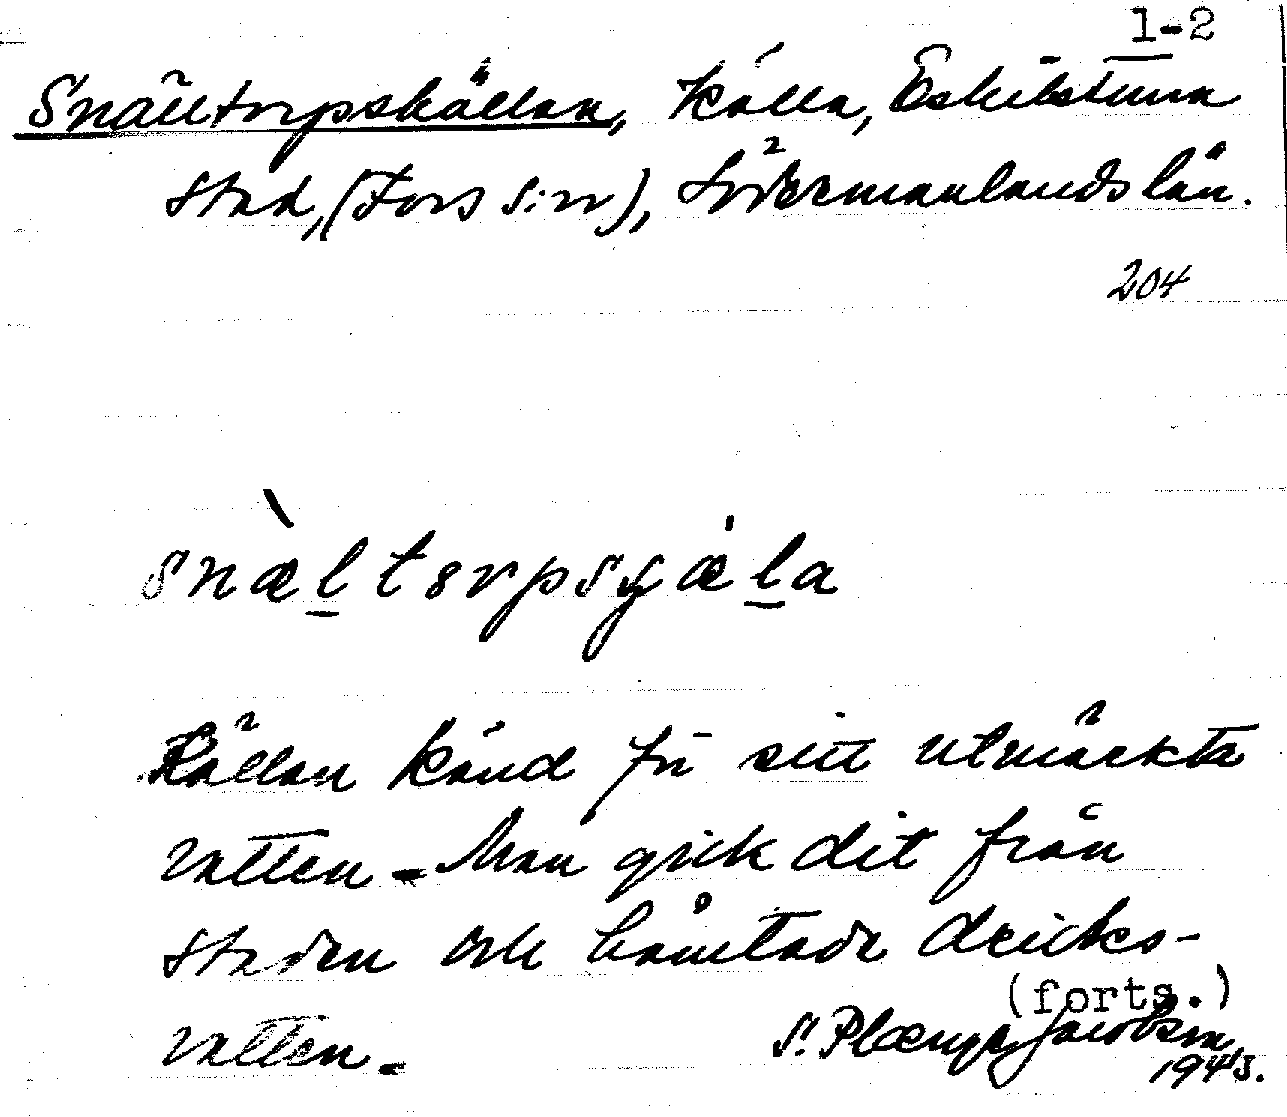 1-2
Snälltorpskällan, källa, Eskilstuna
stad, (Fors s:n), Södermanlands län.
204
snæ̀ltorpsçæla
Källan känd för sitt utmärkta
vatten. - Man gick dit från
staden och hämtade dricks-
(forts.)
vatten. -
S. Plænge Jacobson
1943.